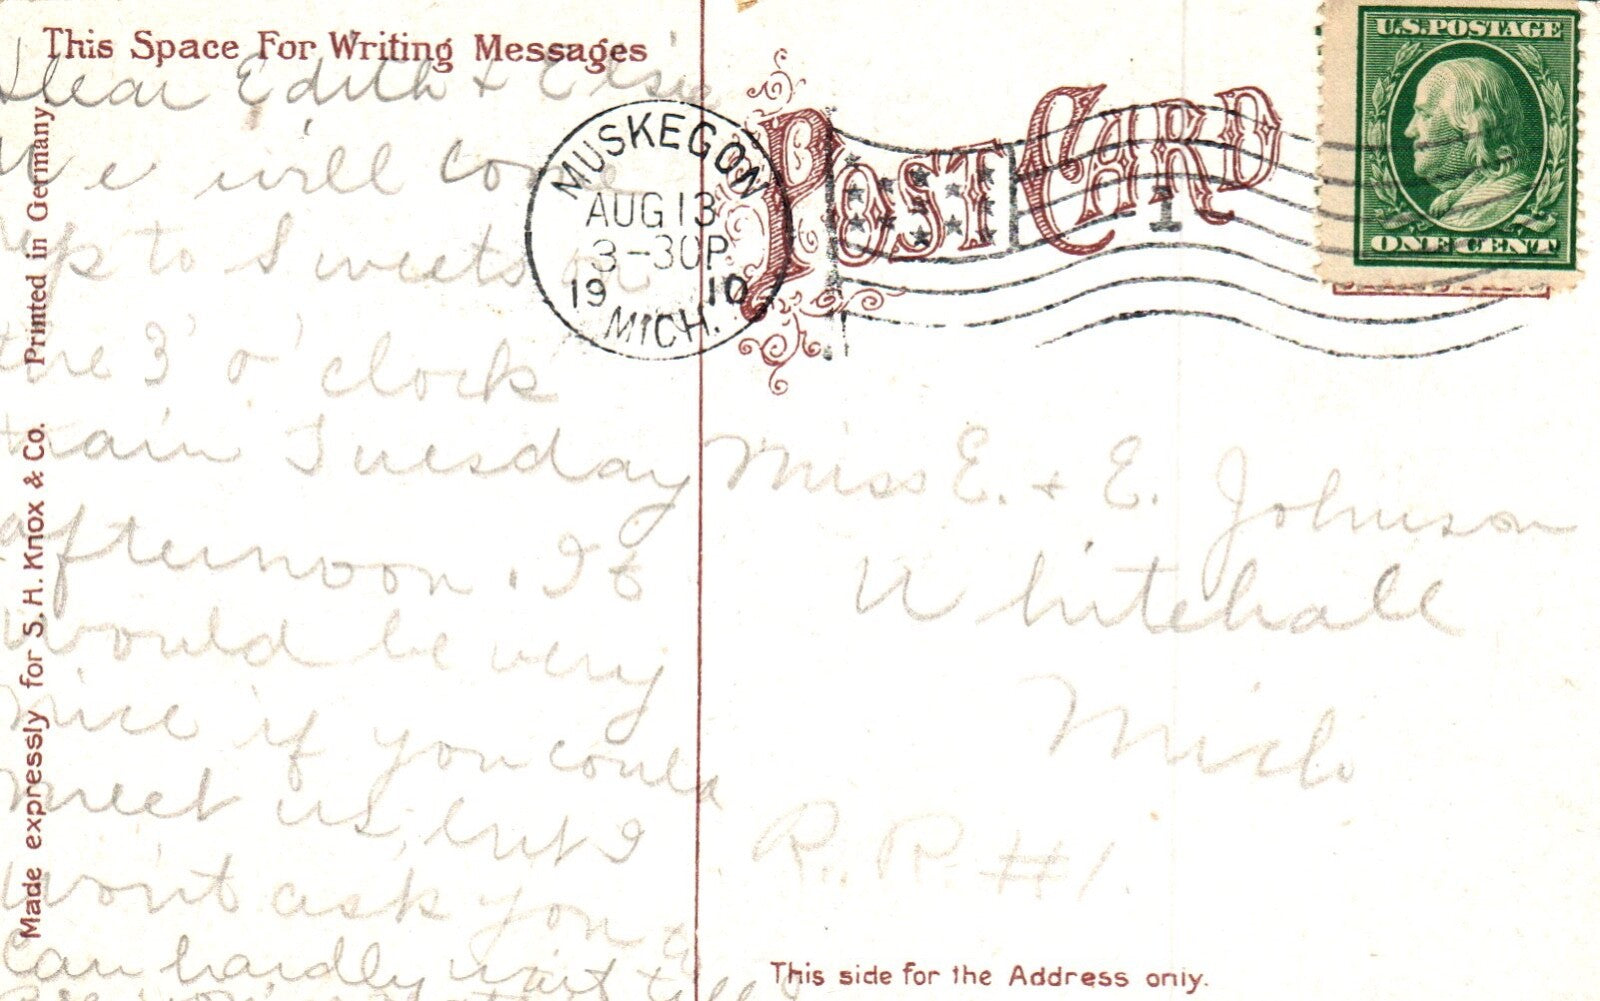 This Space For Writing Messages
Dear Edith + Elsie
We will come
up to Sweets on
the 3 o'clock
train Tuesday
afternoon. It
would be very
nice if you could
meet us, but I
won't ask you
Can hardly wait till
Made expressly for S. H. Knox & Co. Printed in Germany
POST CARD
MUSKEGON
AUG 13
3-30P
1910
MICH.
1
U.S. POSTAGE
ONE CENT
Miss E. + E. Johnson
Whitehall
Mich
R. R. #1.
This side for the Address only.